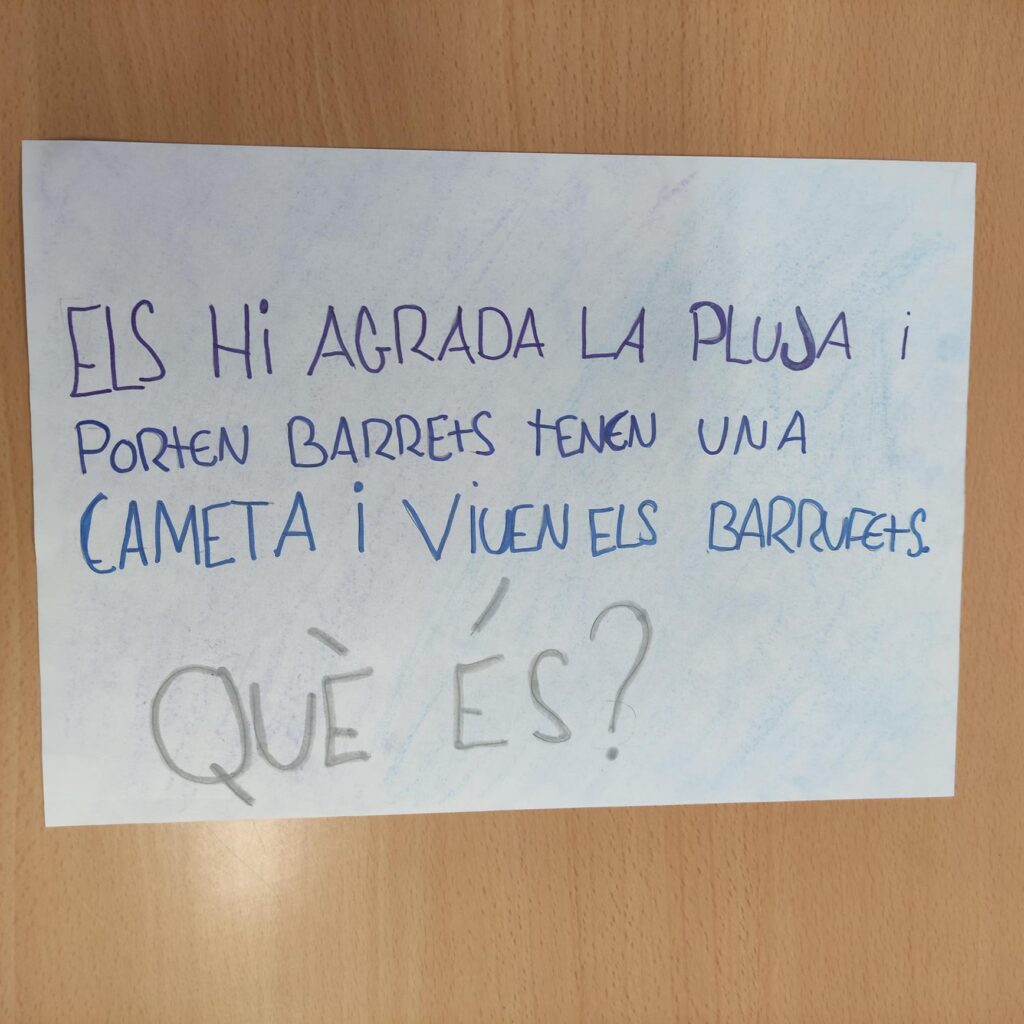 ELS Hi AGRADA LA PLUJA i
PORtEN BARREtS tENEN UNA
CAMETA i ViUEN ELS BARRUFEtS.
QUÈ ÉS?